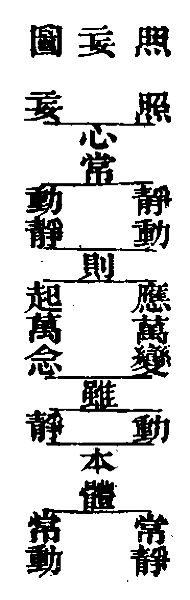 照妄圖
照
妄
心常
靜動
動靜
則
應萬變
起萬念
雖
動
靜
本體
常靜
常動